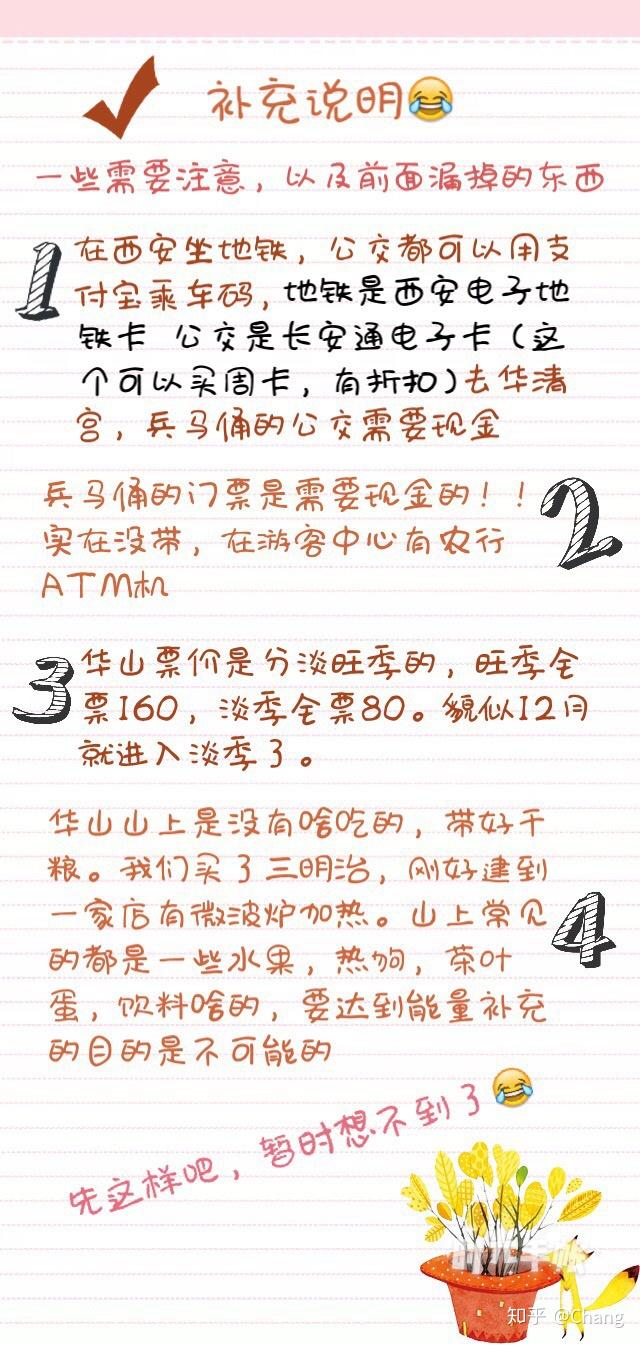 补充说明😂
一些需要注意，以及前面漏掉的东西
1
在西安坐地铁，公交都可以用支
付宝乘车码，地铁是西安电子地
铁卡 公交是长安通电子卡（这
个可以买周卡，有折扣）去华清
宫，兵马俑的公交需要现金
兵马俑的门票是需要现金的！！
2
实在没带，在游客中心有农行
ATM机
3
华山票价是分淡旺季的，旺季全
票160，淡季全票80。貌似12月
就进入淡季了。
华山山上是没有啥吃的，带好干
粮。我们买了三明治，刚好逮到
一家店有微波炉加热。山上常见
4
的都是一些水果，热狗，茶叶
蛋，饮料啥的，要达到能量补充
的目的是不可能的
先这样吧，暂时想不到了😂
知乎 @Chang